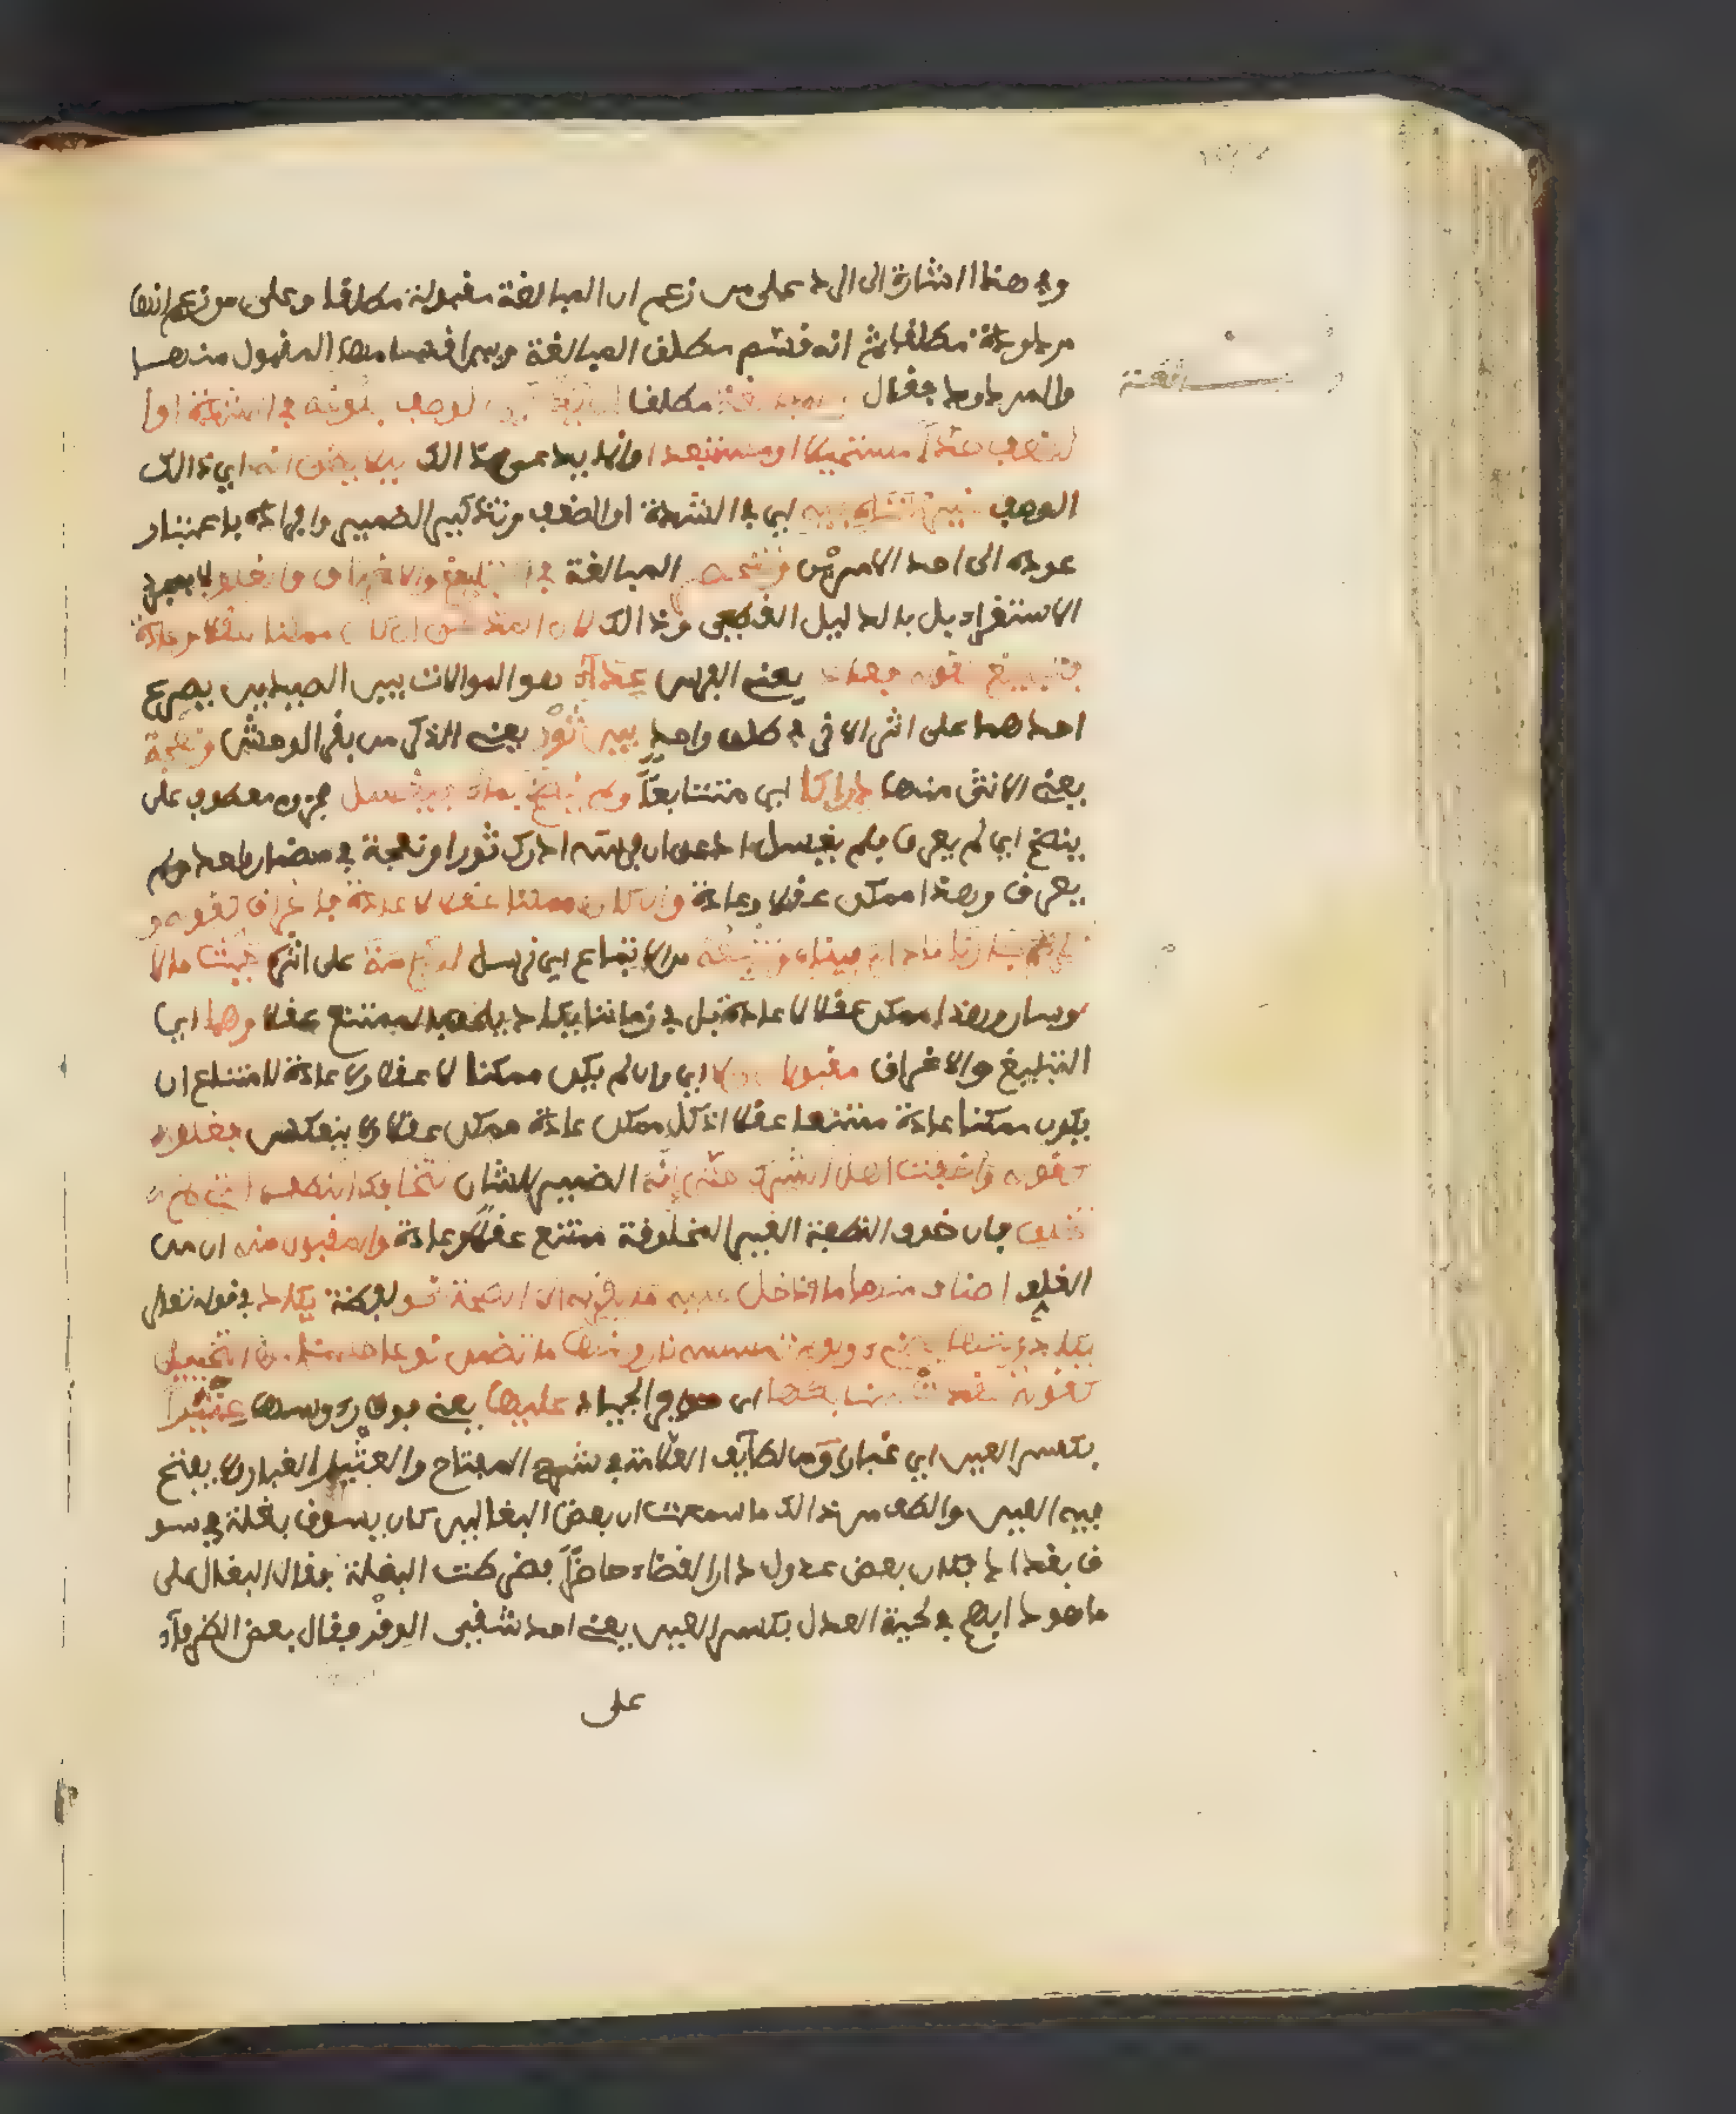 وفي هذا اشارة الى الرد على من زعم ان المبالغة مقبولة مطلقا وعلى من زعم انها
مردودة مطلقا ثم انه فسر مطلق المبالغة وبين اقسامها المقبول منها
والمردود فقال مطلقا لوصف بلوغه في الشدة او
الضعف حدا مستحيلا او مستبعدا وانما يدعى ذالك ليلا يظن انه اي ذالك
الوصف غير متناه فيه اي في الشدة او الضعف وتذكير الضمير وافراده باعتبار
عوده الى احد الامرين وتنحصر المبالغة في التبليغ والاغراق والغلو لا بمجرد
الاستقراء بل بالدليل القطعي وذالك لان المدعى ان كان ممكنا عقلا وعادة
فتبليغ كقوله فعادى يعني الفرس عداء هو الموالات بين الصيدين يصرع
احدهما على اثر الاخر في طلق واحد بين ثور يعني الذكر من بقر الوحش ونعجة
يعني الانثى منها دراكا اي متتابعا ولم ينضح بماء فيغسل مجزوم معطوف على
ينضح اي لم يعرق فلم يغسل ادعى ان فرسه ادرك ثورا ونعجة في مضمار واحد ولم
يعرق وهذا ممكن عقلا وعادة وان كان ممكنا عقلا لا عادة فاغراق كقوله و
نكرم جارنا ما دام فينا ونتبعه من الاتباع اي نرسل الكرامة على اثره حيث مالا
وسار وهذا ممكن عقلا لا عادة بل في زماننا يكاد يلحق بالممتنع عقلا وهما اي
التبليغ والاغراق مقبولان والا اي وان لم يكن ممكنا لا عقلا ولا عادة لامتناع ان
يكون ممكنا عادة ممتنعا عقلا اذ كل ممكن عادة ممكن عقلا ولا ينعكس فغلو
كقوله واخفت اهل الشرك حتى انه الضمير للشان لتخافك النطف التي لم
تخلق فان خوف النطفة الغير المخلوقة ممتنع عقلا وعادة والمقبول منه اي من
الغلو اصناف منها ما ادخل عليه ما يقربه الى الصحة نحو لفظة يكاد في قوله تعالى
يكاد زيتها يضيء ولو لم تمسسه نار ومنها ما تضمن نوعا حسنا من التخييل
كقوله عقدت سنابكها اي حوافر الجياد عليها يعني فوق رءوسها عثيرا
بكسر العين اي غبارا ومن لطايف العلامة في شرح المفتاح والعثير الغبار ولا يفتح
فيه العين والطف من ذالك ما سمعت ان بعض البغالين كان يسوق بغلة في سو
ق بغداد فكان بعض عدول دار القضاء حاضرا فضرطت البغلة فقال البغال على
ما هو دابهم في لحية العدل بكسر العين يعني احد شقي الوقر فقال بعض الظرفاء
على